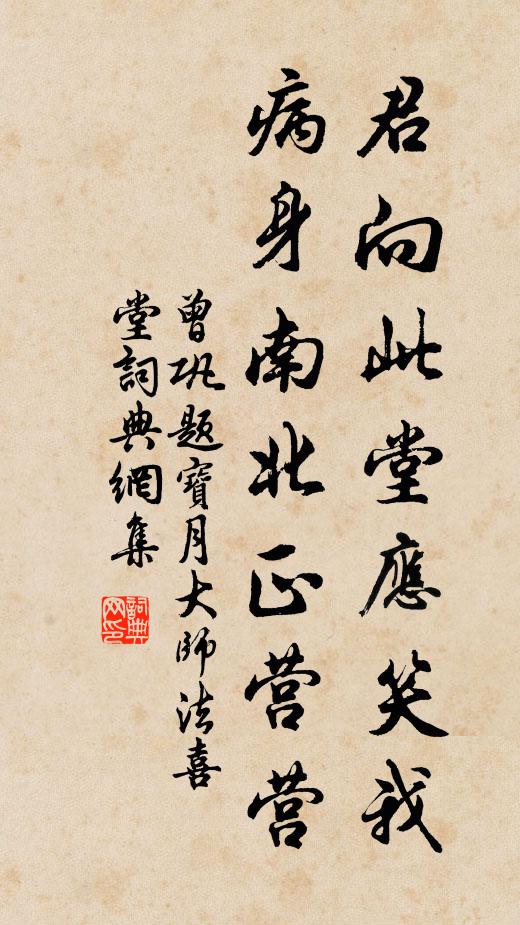 君向此堂應笑我
病身南北正营营
曾巩题寶月大師法喜
堂詞典網集
詞典
网印